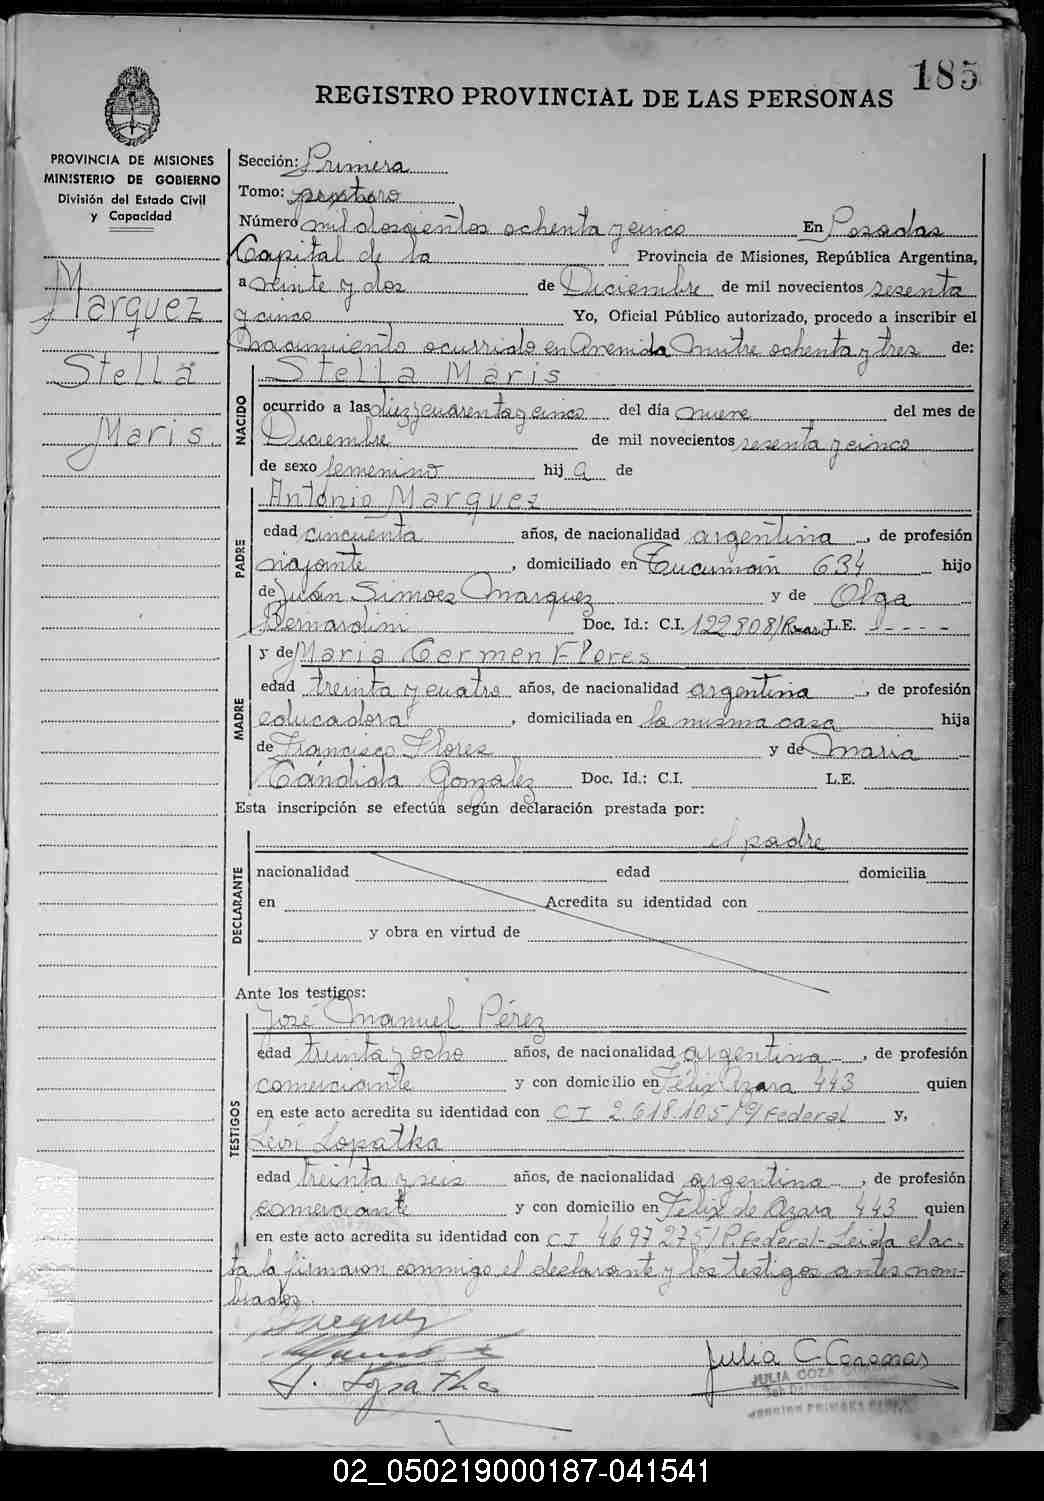 185
REGISTRO PROVINCIAL DE LAS PERSONAS
PROVINCIA DE MISIONES
MINISTERIO DE GOBIERNO
División del Estado Civil
y Capacidad
Marquez
Stella
Maris
Sección: Primera
Tomo:
Número mil doscientos ochenta y cinco En Posadas
Capital de la Provincia de Misiones, República Argentina,
a veinte y dos de Diciembre de mil novecientos sesenta
y cinco Yo, Oficial Público autorizado, procedo a inscribir el
nacimiento ocurrido en Avenida Mitre ochenta y tres de:
NACIDO
Stella Maris
ocurrido a las diez y cuarenta y cinco del día nueve del mes de
Diciembre de mil novecientos sesenta y cinco
de sexo femenino hija de
PADRE
Antonio Marquez
edad cincuenta años, de nacionalidad argentina, de profesión
viajante, domiciliado en Tucumán 634 hijo
de Juán Simoez Marquez y de Olga
Bernardini Doc. Id.: C.I. 122808/ L.E. - - - - -
MADRE
y de Maria Carmen Flores
edad treinta y cuatro años, de nacionalidad argentina, de profesión
educadora, domiciliada en la misma casa hija
de Francisco Flores y de Maria
Cándida Gonzalez Doc. Id.: C.I. L.E.
Esta inscripción se efectúa según declaración prestada por:
DECLARANTE
el padre
nacionalidad edad domicilia
en Acredita su identidad con
y obra en virtud de
Ante los testigos:
TESTIGOS
José Manuel Pérez
edad treinta y ocho años, de nacionalidad argentina, de profesión
comerciante y con domicilio en Félix Azara 443 quien
en este acto acredita su identidad con C I 2.618.105/P/Federal y,
Levi Lopatka
edad treinta y seis años, de nacionalidad argentina, de profesión
comerciante y con domicilio en Félix de Azara 443 quien
en este acto acredita su identidad con C I 4697275/P.Federal - Leida el ac-
ta la firmaron conmigo el declarante y los testigos antes nom-
brados.
Marquez
J. Lopatka
Julia C
JULIA COZA
SECCION PRIMERA
02_050219000187-041541